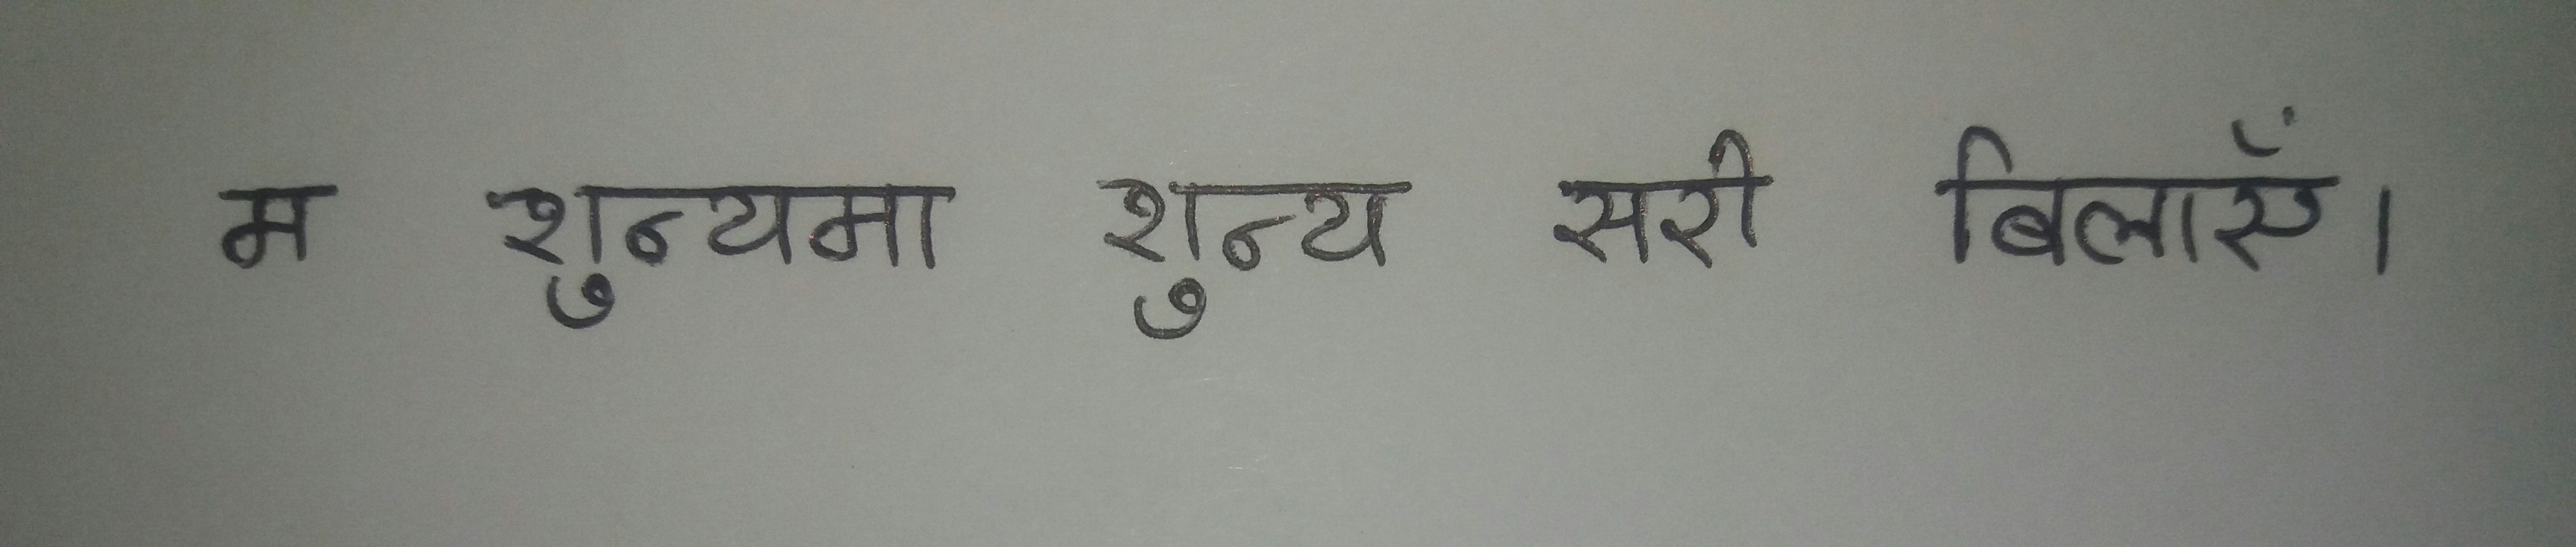 म शुन्यमा शुन्य सरी बिलाएँ।